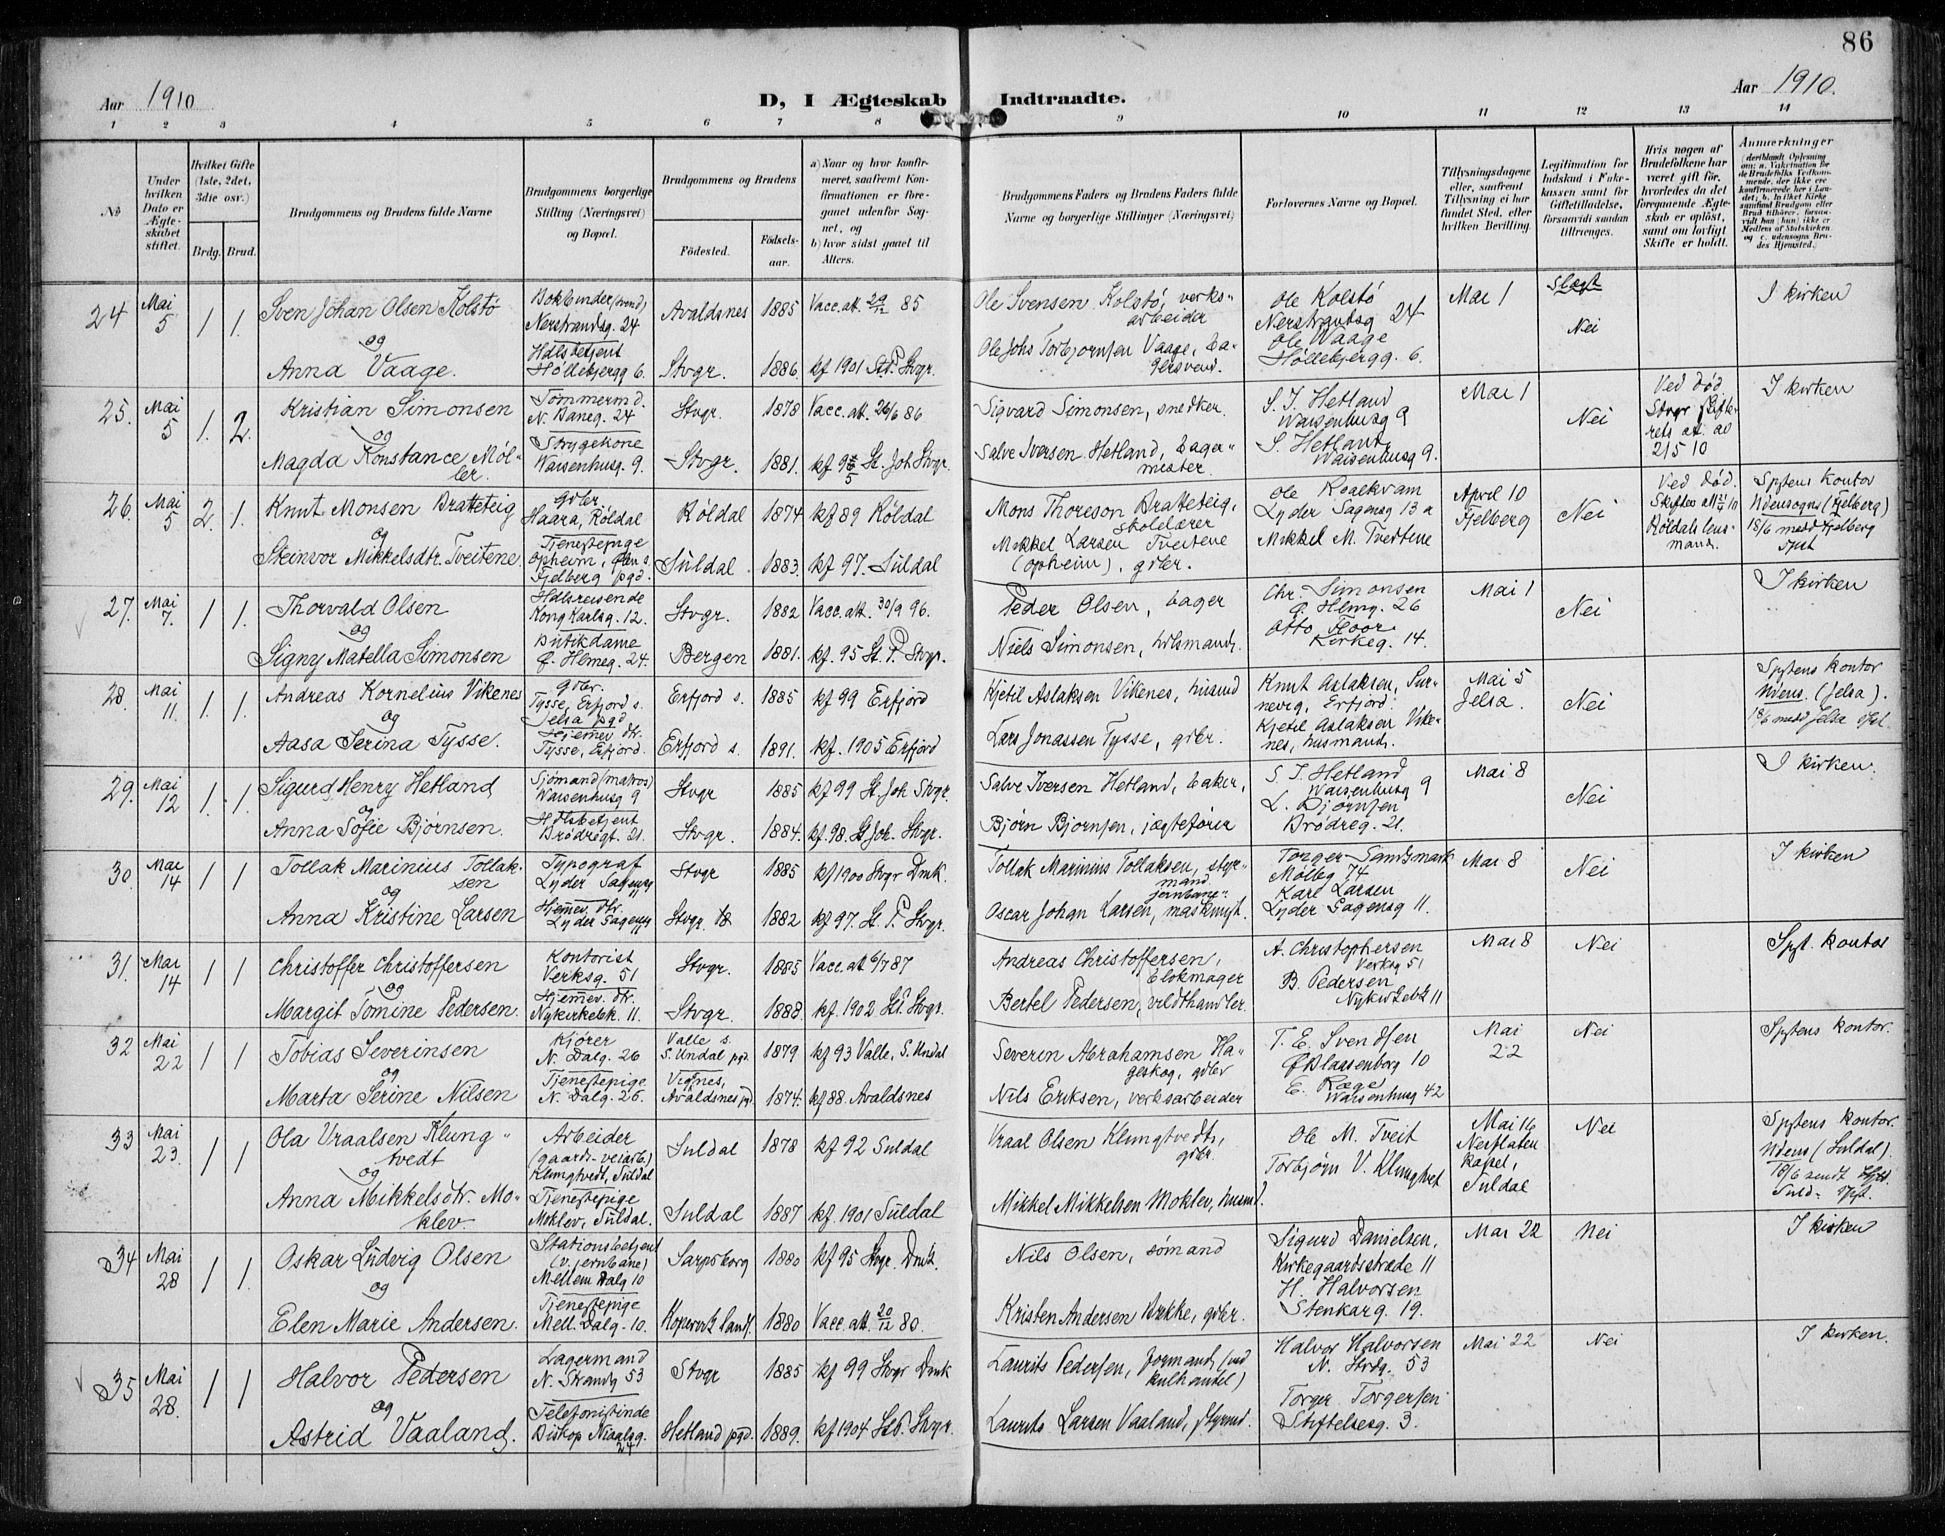 86
Aar 1910
D, I Ægteskab Indtraadte.
Aar 1910.
1 2 3 4 5 6 7 8 9 10 11 12 13 14
No
Under hvilken Dato er Ægteskabet stiftet.
Hvilket Gifte (1ste, 2det, 3die osv.)
Brdg. Brud.
Brudgommens og Brudens fulde Navne
Brudgommens borgerlige Stilling (Næringsvei) og Bopæl.
Brudgommens og Brudens
Fødested.
Fødselsaar.
a) Naar og hvor konfirmeret, saafremt Konfirmationen er foregaaet udenfor Sognet, og
b) hvor sidst gaaet til Alters.
Brudgommens Faders og Brudens Faders fulde Navne og borgerlige Stillinger (Næringsvei)
Forlovernes Navne og Bopæl.
Tillysningsdagene eller, saafremt Tillysning ei har fundet Sted, efter hvilken Bevilling.
Legitimation for Indskud i Enkekassen samt for Giftetilladelse, forsaavidt saadan tiltrænges.
Hvis nogen af Brudefolkene har været gift før, hvorledes da det foregaaende Ægteskab er opløst, samt om lovligt Skifte er holdt.
Anmærkninger
24 Mai 5 1 1.
Sven Johan Olsen Kolstø
og
Anna Vaage.
Bokbinder (svend)
Nerstrandsg. 24
Hdlsbetjent
Hollebjergg 6.
Avaldsnes 1885 Vacc. att. 29/12 85
Stvgr. 1886. kf 1901 St. P. Stvgr.
Ole Svensen Kolstø, verksarbeider
Ole Johs Torbjørnsen Vaage, bagersvend.
Ole Kolstø
Nerstrandsg 24
Ole Waage
Hollebjergg. 6.
Mai 1
Slægt
Nei
I kirken
25. Mai 5 1. 2.
Kristian Simonsen
og
Magda Konstance Møller.
Tømmermd.
N. Baneg. 24
Strygekone
Waisenhusg. 9.
Stvgr. 1878 Vacc. att. 26/6 86
Stvgr. 1881. St. Joh Stvgr.
Sigvard Simonsen, snedker.
Salve Iversen Hetland, bagermester.
S. I. Hetland
Waisenhusg 9
S. Hetland
Waisenhusg 9.
Mai 1
Nei
Ved død.
Stvgr Skifterets at. av 2/5 10
I kirken
26. Mai 5 2. 1.
Knut Monsen Bratteteig
og
Steinvor Mikkelsdtr. Tveitene.
gdbr.
Haara, Røldal
Tjenestepige
Opheim, Ølen s.
Fjelberg pgd.
Røldal 1874 kf 89 Røldal
Suldal 1883. kf 97. Suldal
Mons Thoreson Bratteteig, skolelærer
Mikkel Larsen Tveitene (Opheim), gdbr.
Ole Roalkvam
Lyder Sagensg 13 a
Mikkel M. Tveitene
April 10
Fjelberg
Nei
Ved død.
Røldal lensmand.
Sptens kontor
Udensogns (Fjelberg)
18/6 medd Fjelberg
27. Mai 7. 1 1.
Thorvald Olsen
og
Signy Matella Simonsen
Hdlsreisende
Kong Karlsg. 12.
Butikdame
Ø. Hlmeg. 24.
Stvgr. 1882 Vacc. att. 30/9 96.
Bergen 1881. kf. 95 St. P. Stvgr.
Peder Olsen, bager
Niels Simonsen, hdlsmand.
Chr. Simonsen
Ø. Hlmg. 26
Otto Floor
Kirkeg. 14.
Mai 1
Nei
I kirken
28. Mai 11. 1. 1.
Andreas Kornelius Vikenes
og
Aasa Serina Tysse.
gdbr.
Tysse, Erfjord s.
Jelsa pgd
Hjemmev. dtr.
Tysse, Erfjord.
Erfjord s. 1885 kf 99 Erfjord
Erfjord s. 1891. kf. 1905 Erfjord
Kjetil Aslaksen Vikenes, husmd
Lars Jonassen Tysse, gdbr.
Knut Aslaksen, Erfjord.
Kjetil Aslaksen Vikenes, husmand.
Mai 5
Jelsa.
Nei
Sptens kontor
Udens. (Jelsa).
18/6 medd Jelsa
29. Mai 12 1. 1.
Sigurd Henry Hetland
og
Anna Sofie Bjørnsen.
Sjømand (matros)
Waisenhusg 9
Hdlsbetjent
Brødregt. 21.
Stvgr 1885 kf 99 St. Joh Stvgr.
Stvgr. 1884. kf 98. St Joh. Stvgr.
Salve Iversen Hetland, baker,
Bjørn Bjørnsen, jægtefører
S. I. Hetland
Waisenhusg 9
L. Bjørnsen
Brødreg. 21.
Mai 8
Nei
I kirken.
30. Mai 14 1 1
Tollak Marinius Tollaksen
og
Anna Kristine Larsen
Typograf
Lyder Sagensg
Hjemmev. dtr.
Lyder Sagensg
Stvgr 1885 kf 1900 Stvgr Dmk.
Stvgr. 1882 kf 97. St. P. Stvgr.
Tollak Marinius Tollaksen, styrmand
Oscar Johan Larsen, jernbane-
Torger Sandsmark
Mølleg 74
Karl Larsen
Lyder Sagensg 11.
Mai 8
Nei
I kirken
31. Mai 14 1 1
Christoffer Christoffersen
og
Margit Tomine Pedersen.
Kontorist
Verksg. 51
Hjemmev. dtr.
Nykirkebk. 11.
Stvgr. 1885 Vacc. att 6/7 87
Stvgr. 1888. kf. 1902 St. P. Stvgr.
Andreas Christoffersen, blokmager
Bertel Pedersen, vildthandler.
A. Christophersen
Verksg 51
B. Pedersen
Nykirkebk 11
Mai 8
Nei
Spt. kontor
32 Mai 22 1 1
Tobias Severinsen
og
Marta Serine Nilsen
Kjører
N. Dalg. 26
Tjenestepige
N. Dalg. 26.
Valle s.
S. Undal pgd. 1879 kf 93 Valle, S. Undal
Avaldsnes pgd 1874. kf 88. Avaldsnes
Severin Abrahamsen Hageskog, gdbr
Nils Eriksen, verksarbeider
T. E. Svendsen
Ø Blaasenborg 10
E. Ræge
Waisenhusg 42
Mai 22
Nei
Sptens kontor.
33 Mai 23. 1 1
Ola Vraalsen Klungtvedt
og
Anna Mikkelsdtr. Moklev.
Arbeider
(gaards- veiarb.)
Klungtvedt, Suldal
Tjenestepige
Moklev, Suldal.
Suldal 1878 kf 92 Suldal
Suldal 1887 kf. 1901 Suldal
Vraal Olsen Klungtvedt, gdbr.
Mikkel Mikkelsen Moklev, husmd.
Ole M. Tveit
Torbjørn V. Klungtvet
Mai 16
Nesflaten kapel, Suldal
Nei
Sptens kontor
Udens (Suldal).
18/6 sendt
34 Mai 28 1 1.
Oskar Ludvig Olsen
og
Elen Marie Andersen.
Stationsbetjent
(v. jernbane)
Mellem Dalg 10
Tjenestepige
Mell. Dalg. 10.
Sarpsborg 1880 kf 95 Stvgr. Dmk.
Kopervik lands. 1880 Vacc. att. 20/12 80.
Nils Olsen, sømand
Kristen Andersen Bække, gdbr.
Sigurd Danielsen,
Kirkegaardsstræde 11
H. Halvorsen
Stenkarg. 19.
Mai 22
Nei
I kirken
35 Mai 28. 1 1
Halvor Pedersen
og
Astrid Vaaland.
Lagermand
N. Strandg 53
Telefonistinde
Biskop Nialsg. 24
Stvgr 1885 kf 99 Stvgr Dmk
Hetland pgd. 1889. kf 1904 St. P. Stvgr.
Laurits Pedersen, formand (ved kulhandel)
Laurits Larsen Vaaland, styrmd.
Halvor Halvorsen
N. Strdg. 53
Torger Torgersen
Stiftelsesg. 3.
Mai 22
Nei
I kirken.